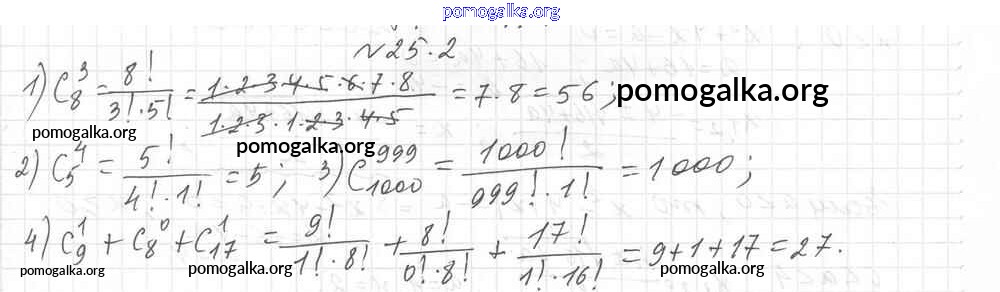 pomogalka.org
№25.2
1) C₈³ = 8!/(3!·5!) = (1·2·3·4·5·6·7·8)/(1·2·3·1·2·3·4·5) = 7·8 = 56; pomogalka.org
pomogalka.org pomogalka.org
2) C₅⁴ = 5!/(4!·1!) = 5; 3) C₁₀₀₀⁹⁹⁹ = 1000!/(999!·1!) = 1000;
4) C₉¹ + C₈⁰ + C₁₇¹ = 9!/(1!·8!) + 8!/(0!·8!) + 17!/(1!·16!) = 9+1+17 = 27.
pomogalka.org pomogalka.org pomogalka.org